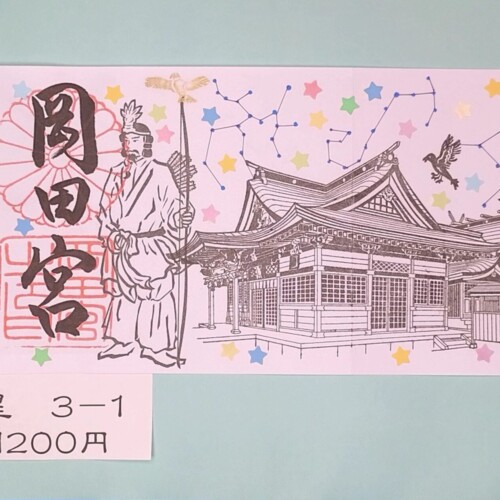 岡田宮
3-1
1200円